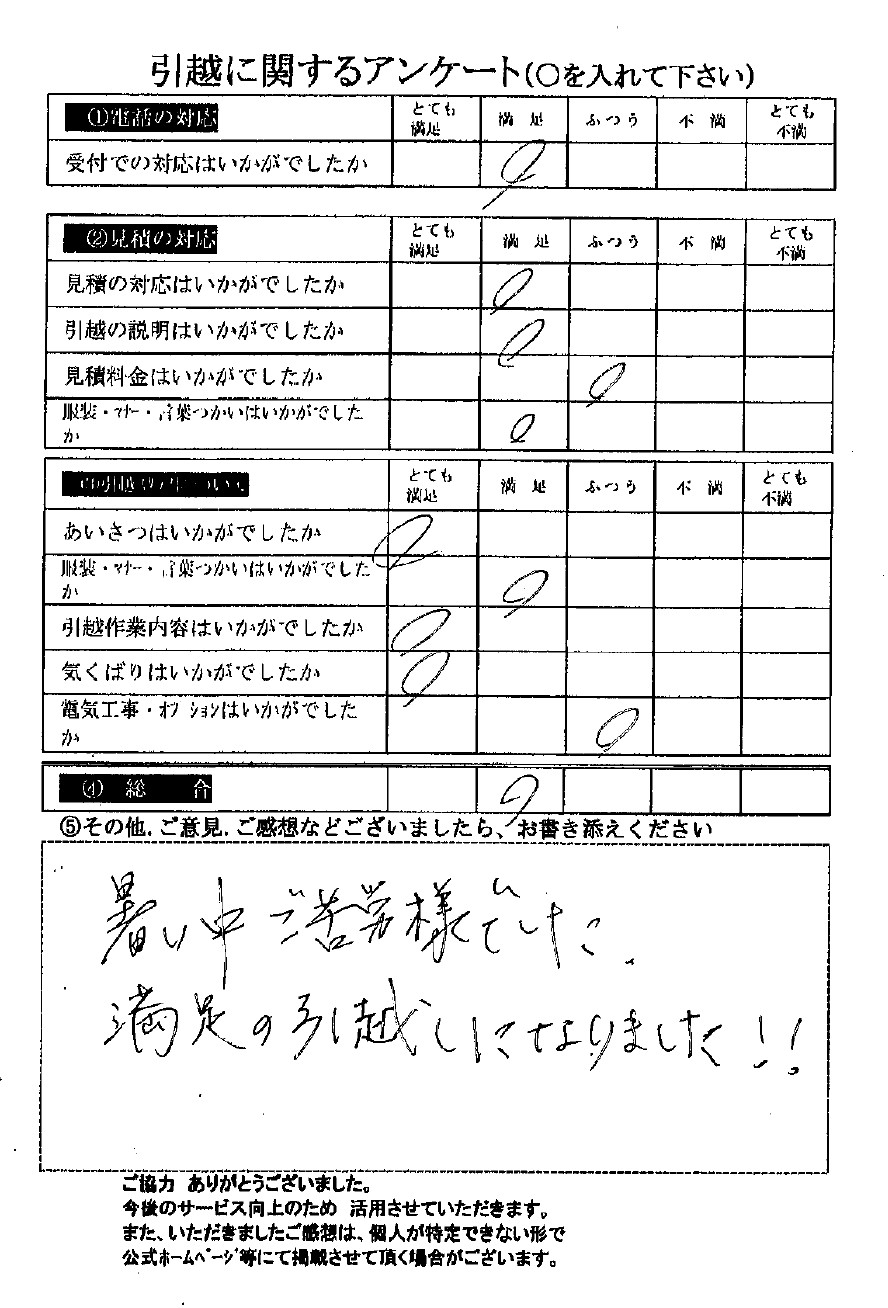 引越に関するアンケート(○を入れて下さい)
①電話の対応 とても満足 満足 ふつう 不満 とても不満
受付での対応はいかがでしたか
②見積の対応 とても満足 満足 ふつう 不満 とても不満
見積の対応はいかがでしたか
引越の説明はいかがでしたか
見積料金はいかがでしたか
服装・マナー・言葉つかいはいかがでした
か
とても満足 満足 ふつう 不満 とても不満
あいさつはいかがでしたか
服装・マナー・言葉つかいはいかがでした
か
引越作業内容はいかがでしたか
気くばりはいかがでしたか
電気工事・オプションはいかがでした
か
④ 総合
⑤その他、ご意見、ご感想などございましたら、お書き添えください
暑い中ご苦労様でした。
満足の引越しになりました!!
ご協力 ありがとうございました。
今後のサービス向上のため 活用させていただきます。
また、いただきましたご感想は、個人が特定できない形で
公式ホームページ等にて掲載させて頂く場合がございます。